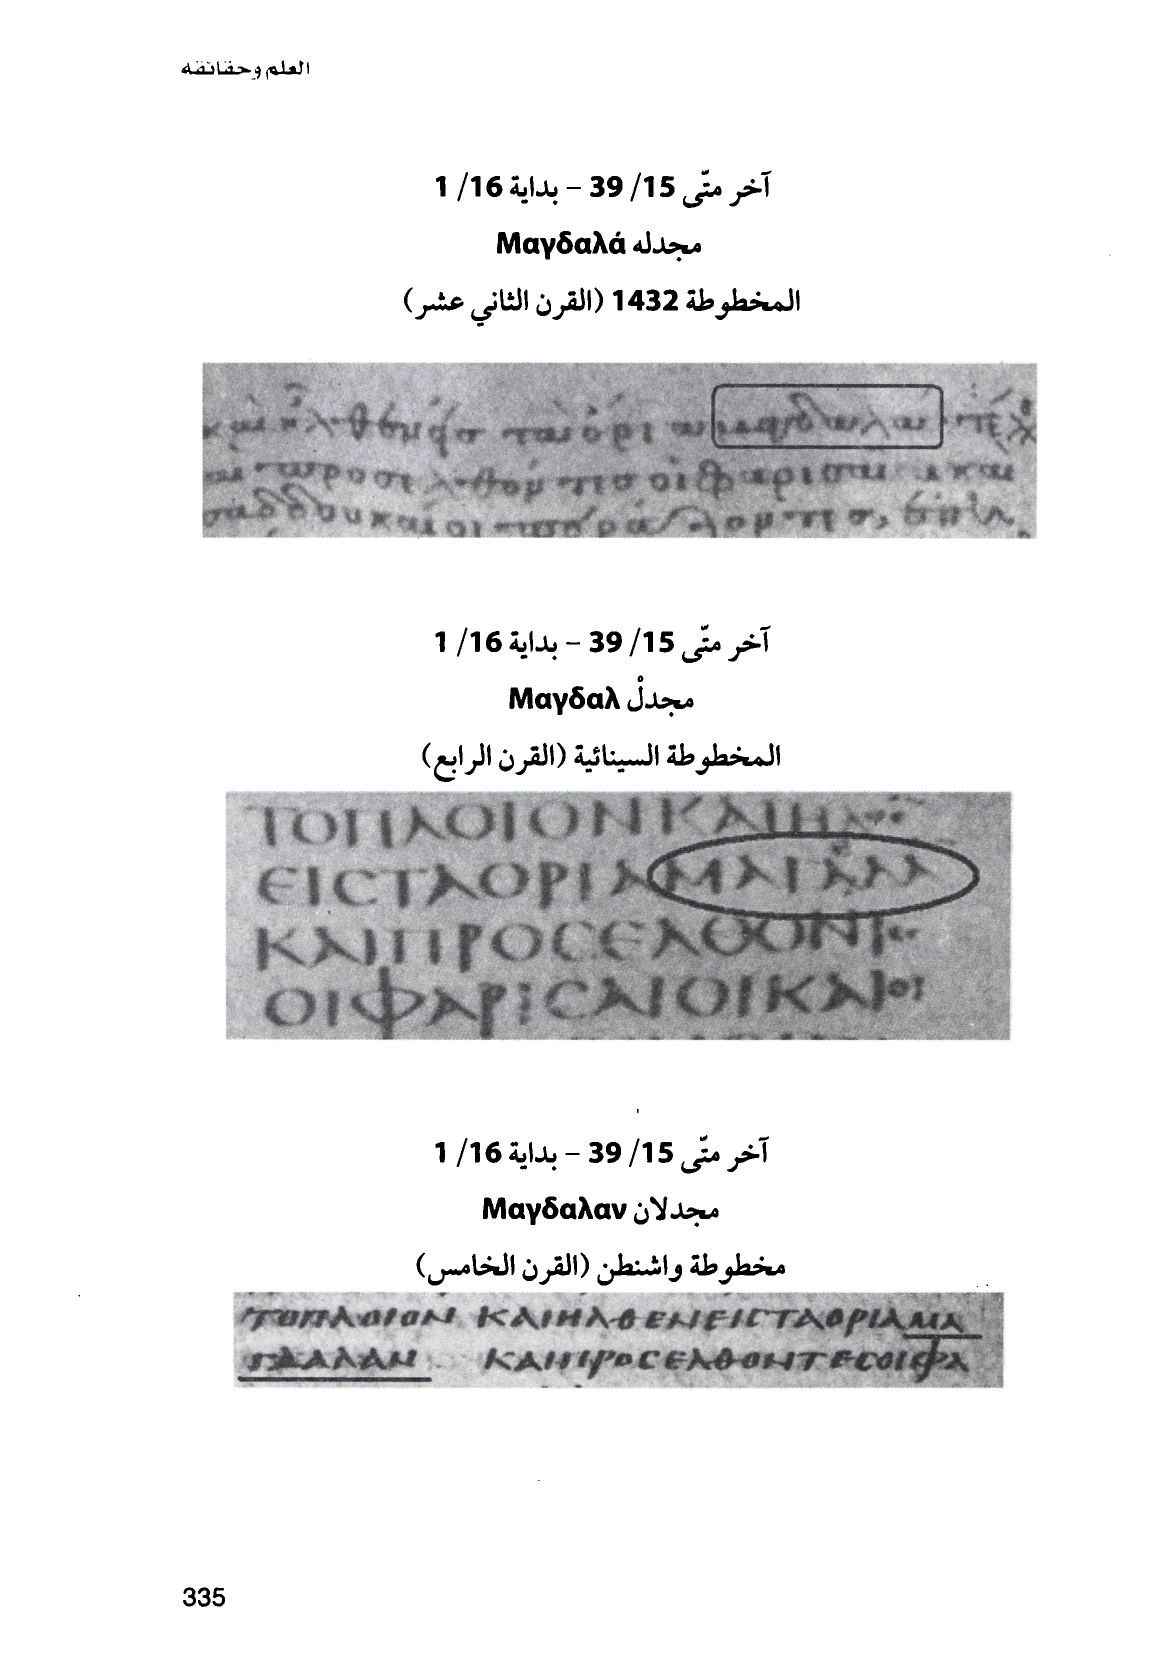 العلم وحقائقه
آخر متّى 15/ 39 – بداية 16/ 1
مجدله Μαγδαλά
المخطوطة 1432 (القرن الثاني عشر)
آخر متّى 15/ 39 – بداية 16/ 1
مجدلْ Μαγδαλ
المخطوطة السينائية (القرن الرابع)
ΤΟΠΛΟΙΟΝΚΑΙΗ
ΕΙϹΤΑΟΡΙΑΜΑΓΑΔΑ
ΚΑΙΠΡΟϹΕΛΘΟΝΤ
ΟΙΦΑΡΙϹΑΙΟΙΚΑΙΟΙ
آخر متّى 15/ 39 – بداية 16/ 1
مجدلان Μαγδαλαν
مخطوطة واشنطن (القرن الخامس)
ΤΟΠΛΟΙΟΝ ΚΑΙΗΛΘΕΝΕΙϹΤΑΟΡΙΑΜΑ
ΓΔΑΛΑΝ ΚΑΙΠΡΟϹΕΛΘΟΝΤΕϹΟΙΦΑ
335